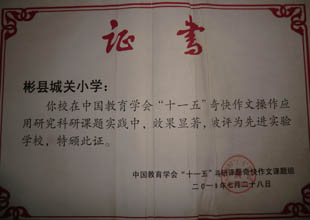 证书
彬县城关小学：
你校在中国教育学会“十一五”奇快作文操作应
用研究科研课题实践中，效果显著，被评为先进实验
学校，特颁此证。
中国教育学会“十一五”科研课题奇快作文课题组
二〇一〇年七月二十八日